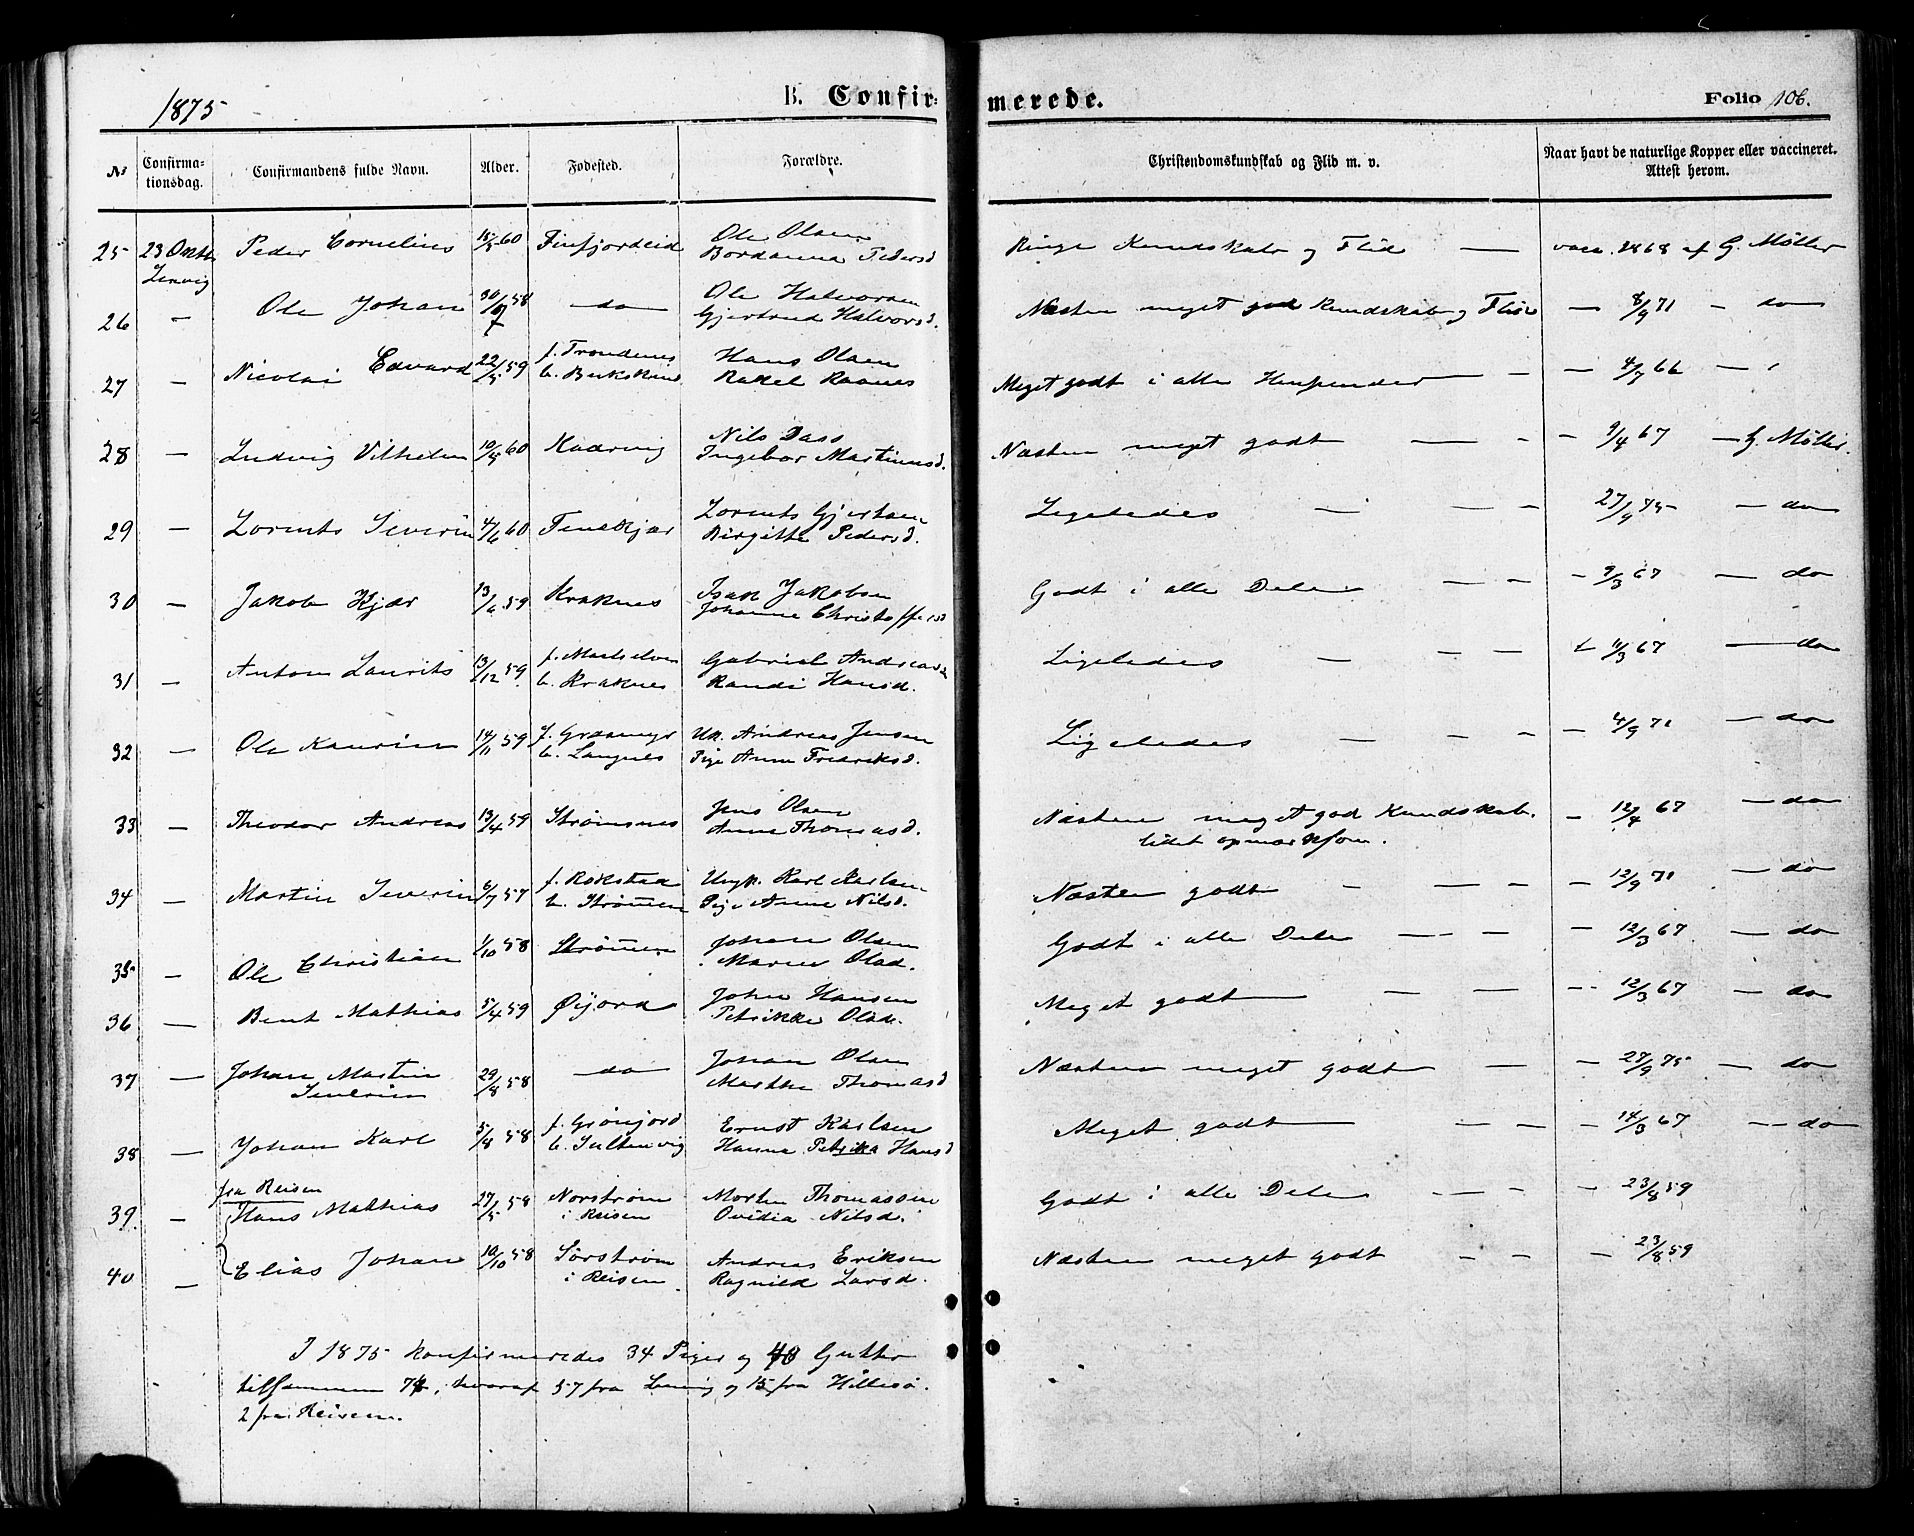 1875
B. Confirmerede.
Folio 106.
No Confirmationsdag. Confirmandens fulde Navn. Alder. Fødested. Forældre. Christendomskundskab og Flid m. v. Naar havt de naturlige Kopper eller vaccineret. Attest herom.
25 23 Oktb Peder Cornelius 15/5 60 Finfjordeid Ole Olsen Ringe Kundskab og Flid — vacc. 1868 af G. Møller
Lenvig Bordanna Pedersd
26 — Ole Johan 30/7 58 — do — Ole Halvorsen Næsten meget god Kundskab og Flid — 8/9 71 — do
Gjertrud Halvorsd.
27 — Nicolai Edvard 22/5 59 f. Trondenes Hans Olsen Meget godt i alle Henseender — — 4/7 66 —
b. Bukskind Rakel Raanes
28 — Ludvig Vilhelm 10/4 60 Kaarvig Nils Dass Næsten meget godt — — — 9/4 67 — G. Møller.
Ingebor Martinusd.
29 — Lorents Severin 4/6 60 Finskjær Lorents Gjertsen Ligeledes — — — 27/9 75 — do
Birgitte Pedersd.
30 — Jakob Kjær 13/6 59 Kraknes Isak Jakobsen Godt i alle Dele — — — 9/3 67 — do
Johanna Christoffersd
31 — Anton Laurits 13/12 59 f. Maalselven Gabriel Andreassen Ligeledes — — — 11/3 67 — do
b. Kraknes Randi Hansd.
32 — Ole Kaurin 14/11 59 f. Græsmyr Uk. Andreas Jensen Ligeledes — — — — 4/9 71 — do
b. Langnes Pige Anne Fredriksd.
33 — Theodor Andreas 13/4 59 Strømsnes Jens Olsen Næsten meget god Kundskab. — 12/4 67 — do
Anne Thomasd. lidet opmærksom.
34 — Martin Severin 6/7 57 f. Rokstad Ungk. Karl Karlsen Næsten godt — — — — 12/9 71 — do
b. Strømmen Pige Anne Nilsd.
35 — Ole Christian 1/10 58 Strømmen Johan Olsen Godt i alle Dele — — — — 12/3 67 — do
Maren Olsd.
36 — Bent Mathias 5/4 59 Øijord Johan Hansen Meget godt — — — — 12/3 67 — do
Petrikke Olsd.
37 — Johan Martin 29/8 58 — do Johan Olsen Næsten meget godt — — — 27/9 75 — do
Severin Marthe Thomasd
38 — Johan Karl 5/8 58 f. Grønjord Ernst Karlsen Meget godt — — — — 14/3 67 — do
b. Sultenvig Hanna Petrika Hansd
fra Reisen
39 — Hans Mathias 27/5 58 Norstrøm Morten Thomassen Godt i alle Dele — — — 23/8 59
i Reisen Ovidia Nilsd.
40 — Elias Johan 10/10 58 Sørstrøm Andreas Eriksen Næsten meget godt — — — 23/8 59
i Reisen Ragnild Larsd.
I 1875 konfirmeredes 34 Piger og 40 Gutter
tilsammen 74, hvoraf 57 fra Lenvig og 15 fra Hillesø.
2 fra Reisen.